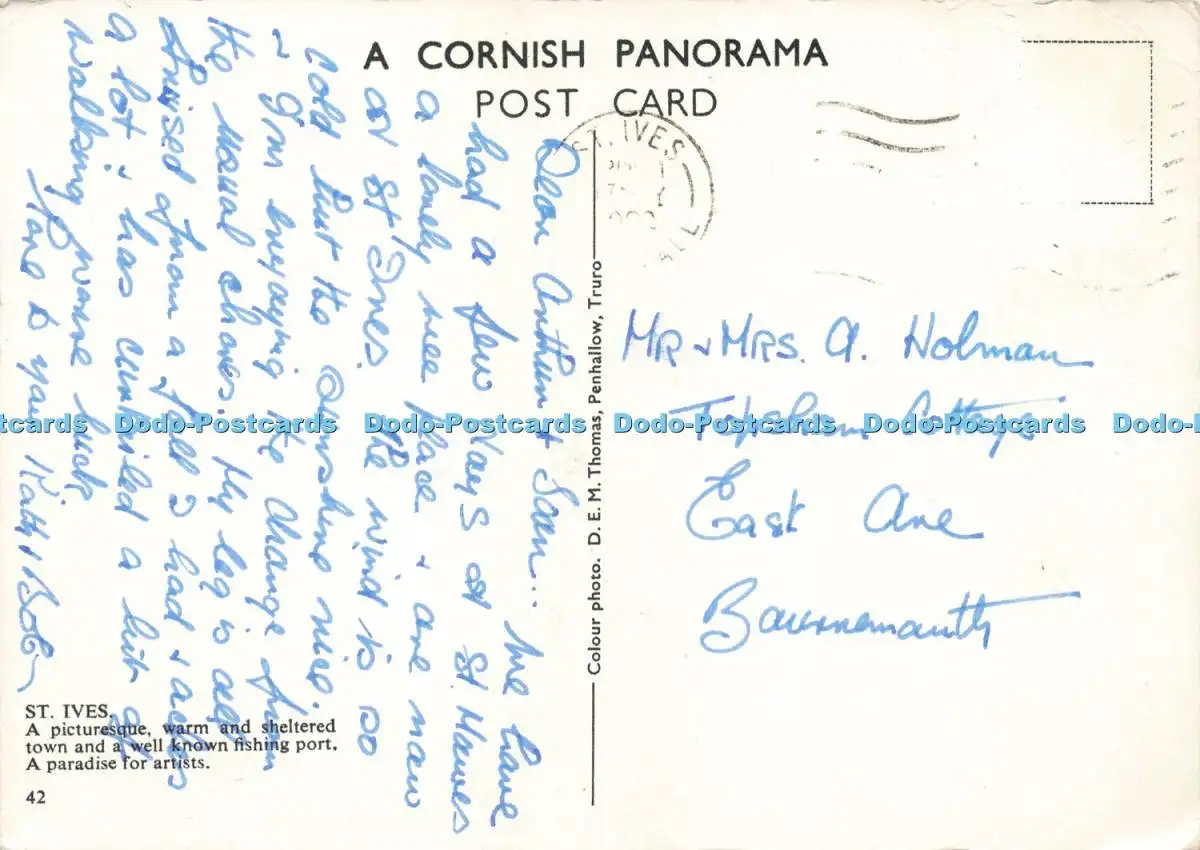 A CORNISH PANORAMA
POST CARD
ST. IVES
Dear Arthur + Jean.. We have
had a few days at St. Mawes
a lovely wee place + are now
at St Ives. The wind is so
cold but the sunshine nice.
+ I'm enjoying the change from
the usual chores. My leg is all
bruised from a fall I had + aches
a lot. has curtailed a bit of
walking worse luck
Love to you Kath + Bob
MR + MRS. A. Holman
Topsham Cottage
East Ave
Bournemouth
Colour photo. D. E. M. Thomas, Penhallow, Truro
ST. IVES.
A picturesque, warm and sheltered
town and a well known fishing port.
A paradise for artists.
42
Dodo-Postcards Dodo-Postcards Dodo-Postcards Dodo-Postcards Dodo-Postcards